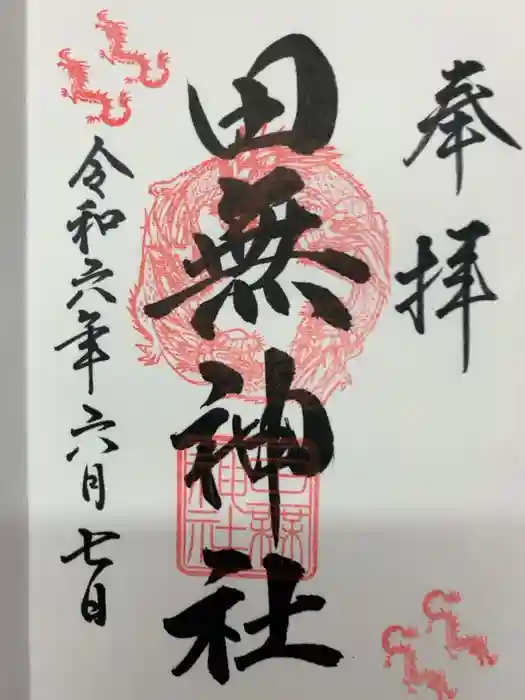 奉拝
田無神社
令和六年六月七日
田無神社